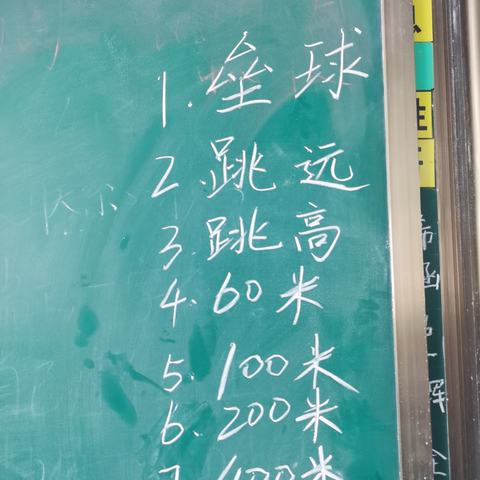 1. 垒球
2 跳远
3 跳高
4. 60米
5. 100米
6. 200米
7. 400米